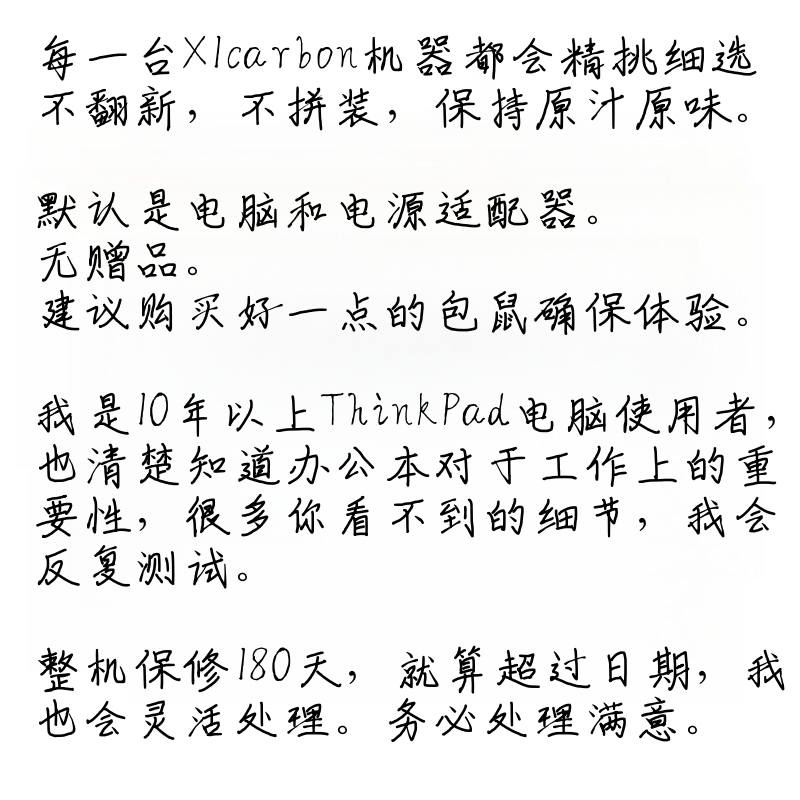 每一台X1carbon机器都会精挑细选
不翻新，不拼装，保持原汁原味。
默认是电脑和电源适配器。
无赠品。
建议购买好一点的包鼠确保体验。
我是10年以上ThinkPad电脑使用者，
也清楚知道办公本对于工作上的重
要性，很多你看不到的细节，我会
反复测试。
整机保修180天，就算超过日期，我
也会灵活处理。务必处理满意。